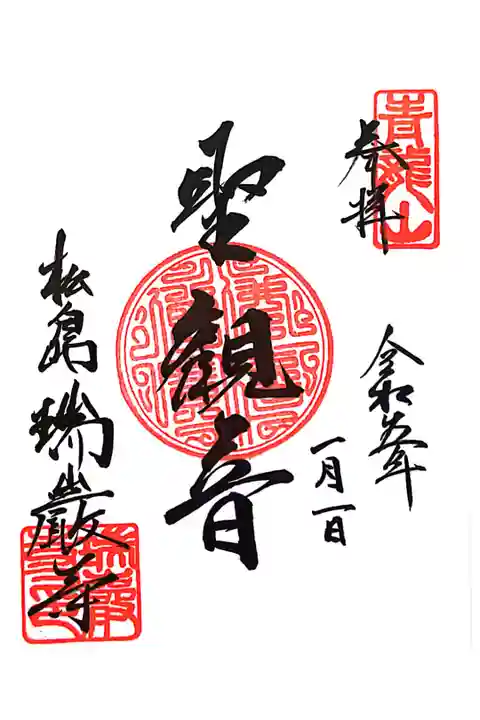 青龍山
奉拝
令和五年
一月一日
聖観音
松島瑞巌寺